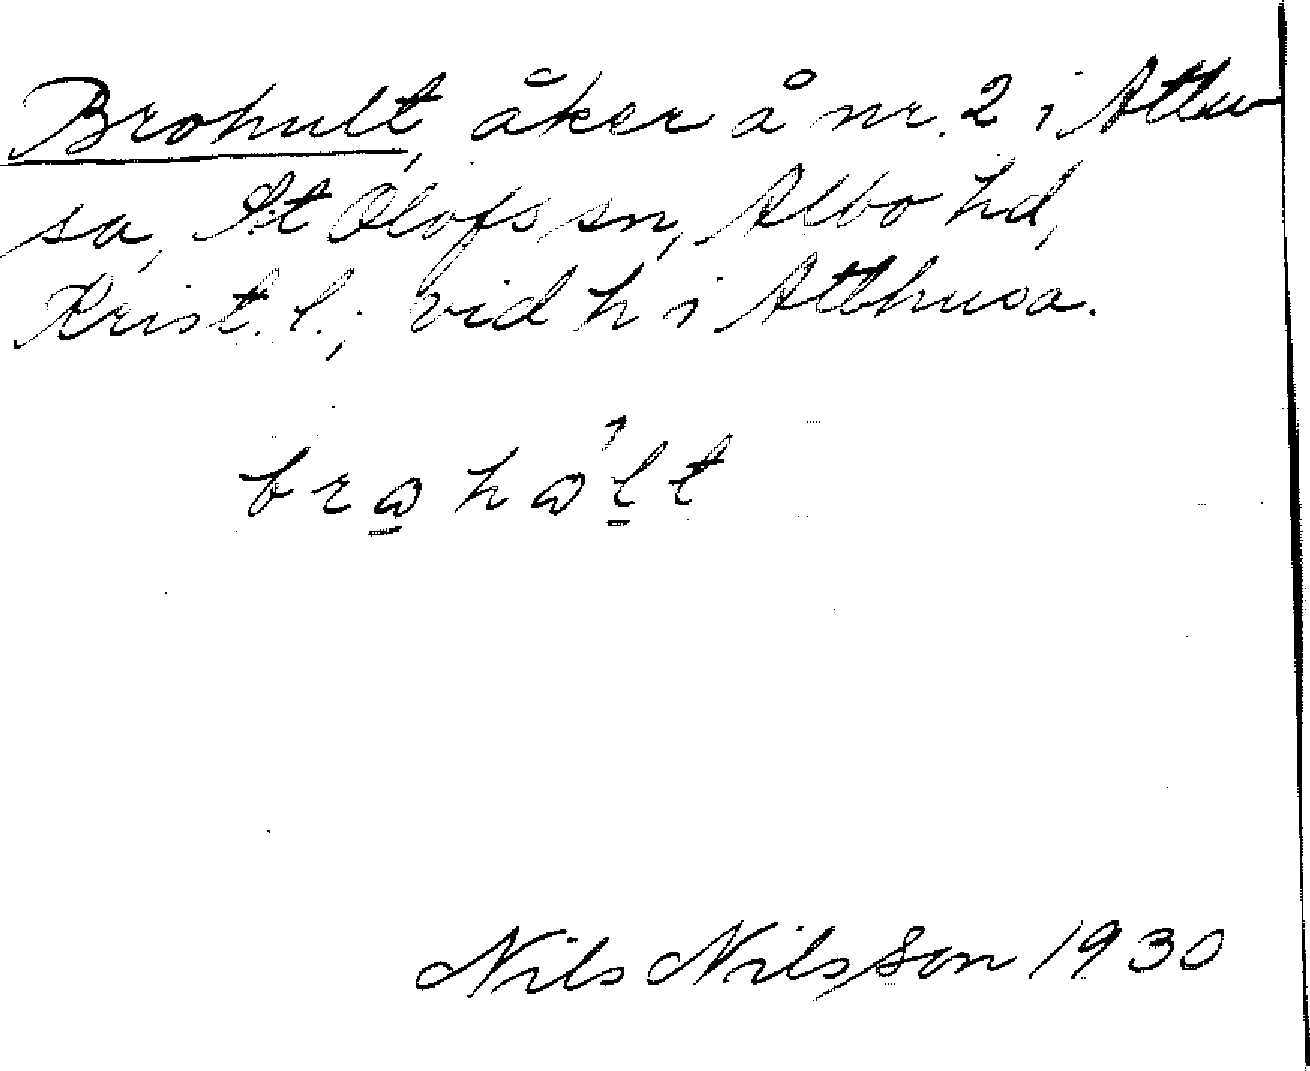 Brohult, åker å nr. 2 i Atthu
sa, St Olofs sn, Albo hd,
Krist. l.; vid h i Atthusa.
Nils Nilsson 1930